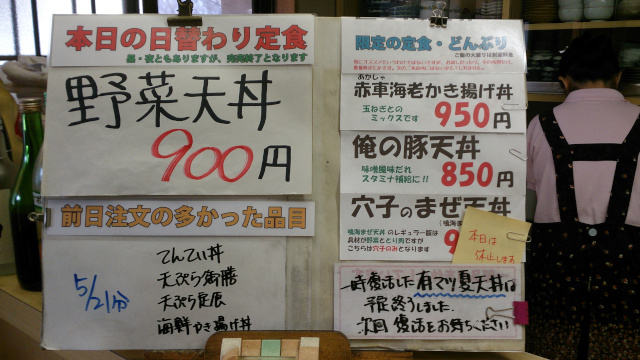 本日の日替わり定食
昼・夜ともありますが、完売終了となります
野菜天丼
900円
前日注文の多かった品目
5/21分
てんてい丼
天ぷら御膳
天ぷら定食
海鮮かき揚げ丼
限定の定食・どんぶり
あかしゃ
赤車海老かき揚げ丼
玉ねぎとの
ミックスです
950円
俺の豚天丼
味噌風味だれ
スタミナ補給に!!
850円
穴子のまぜ天丼
鳴海まぜ天丼のレギュラー版は
具材が野菜ととり肉ですが
こちらは穴子のみとなります
本日は
休止します
一時復活した有マツ夏天丼は
予定終了しました
次回復活をお待ちください